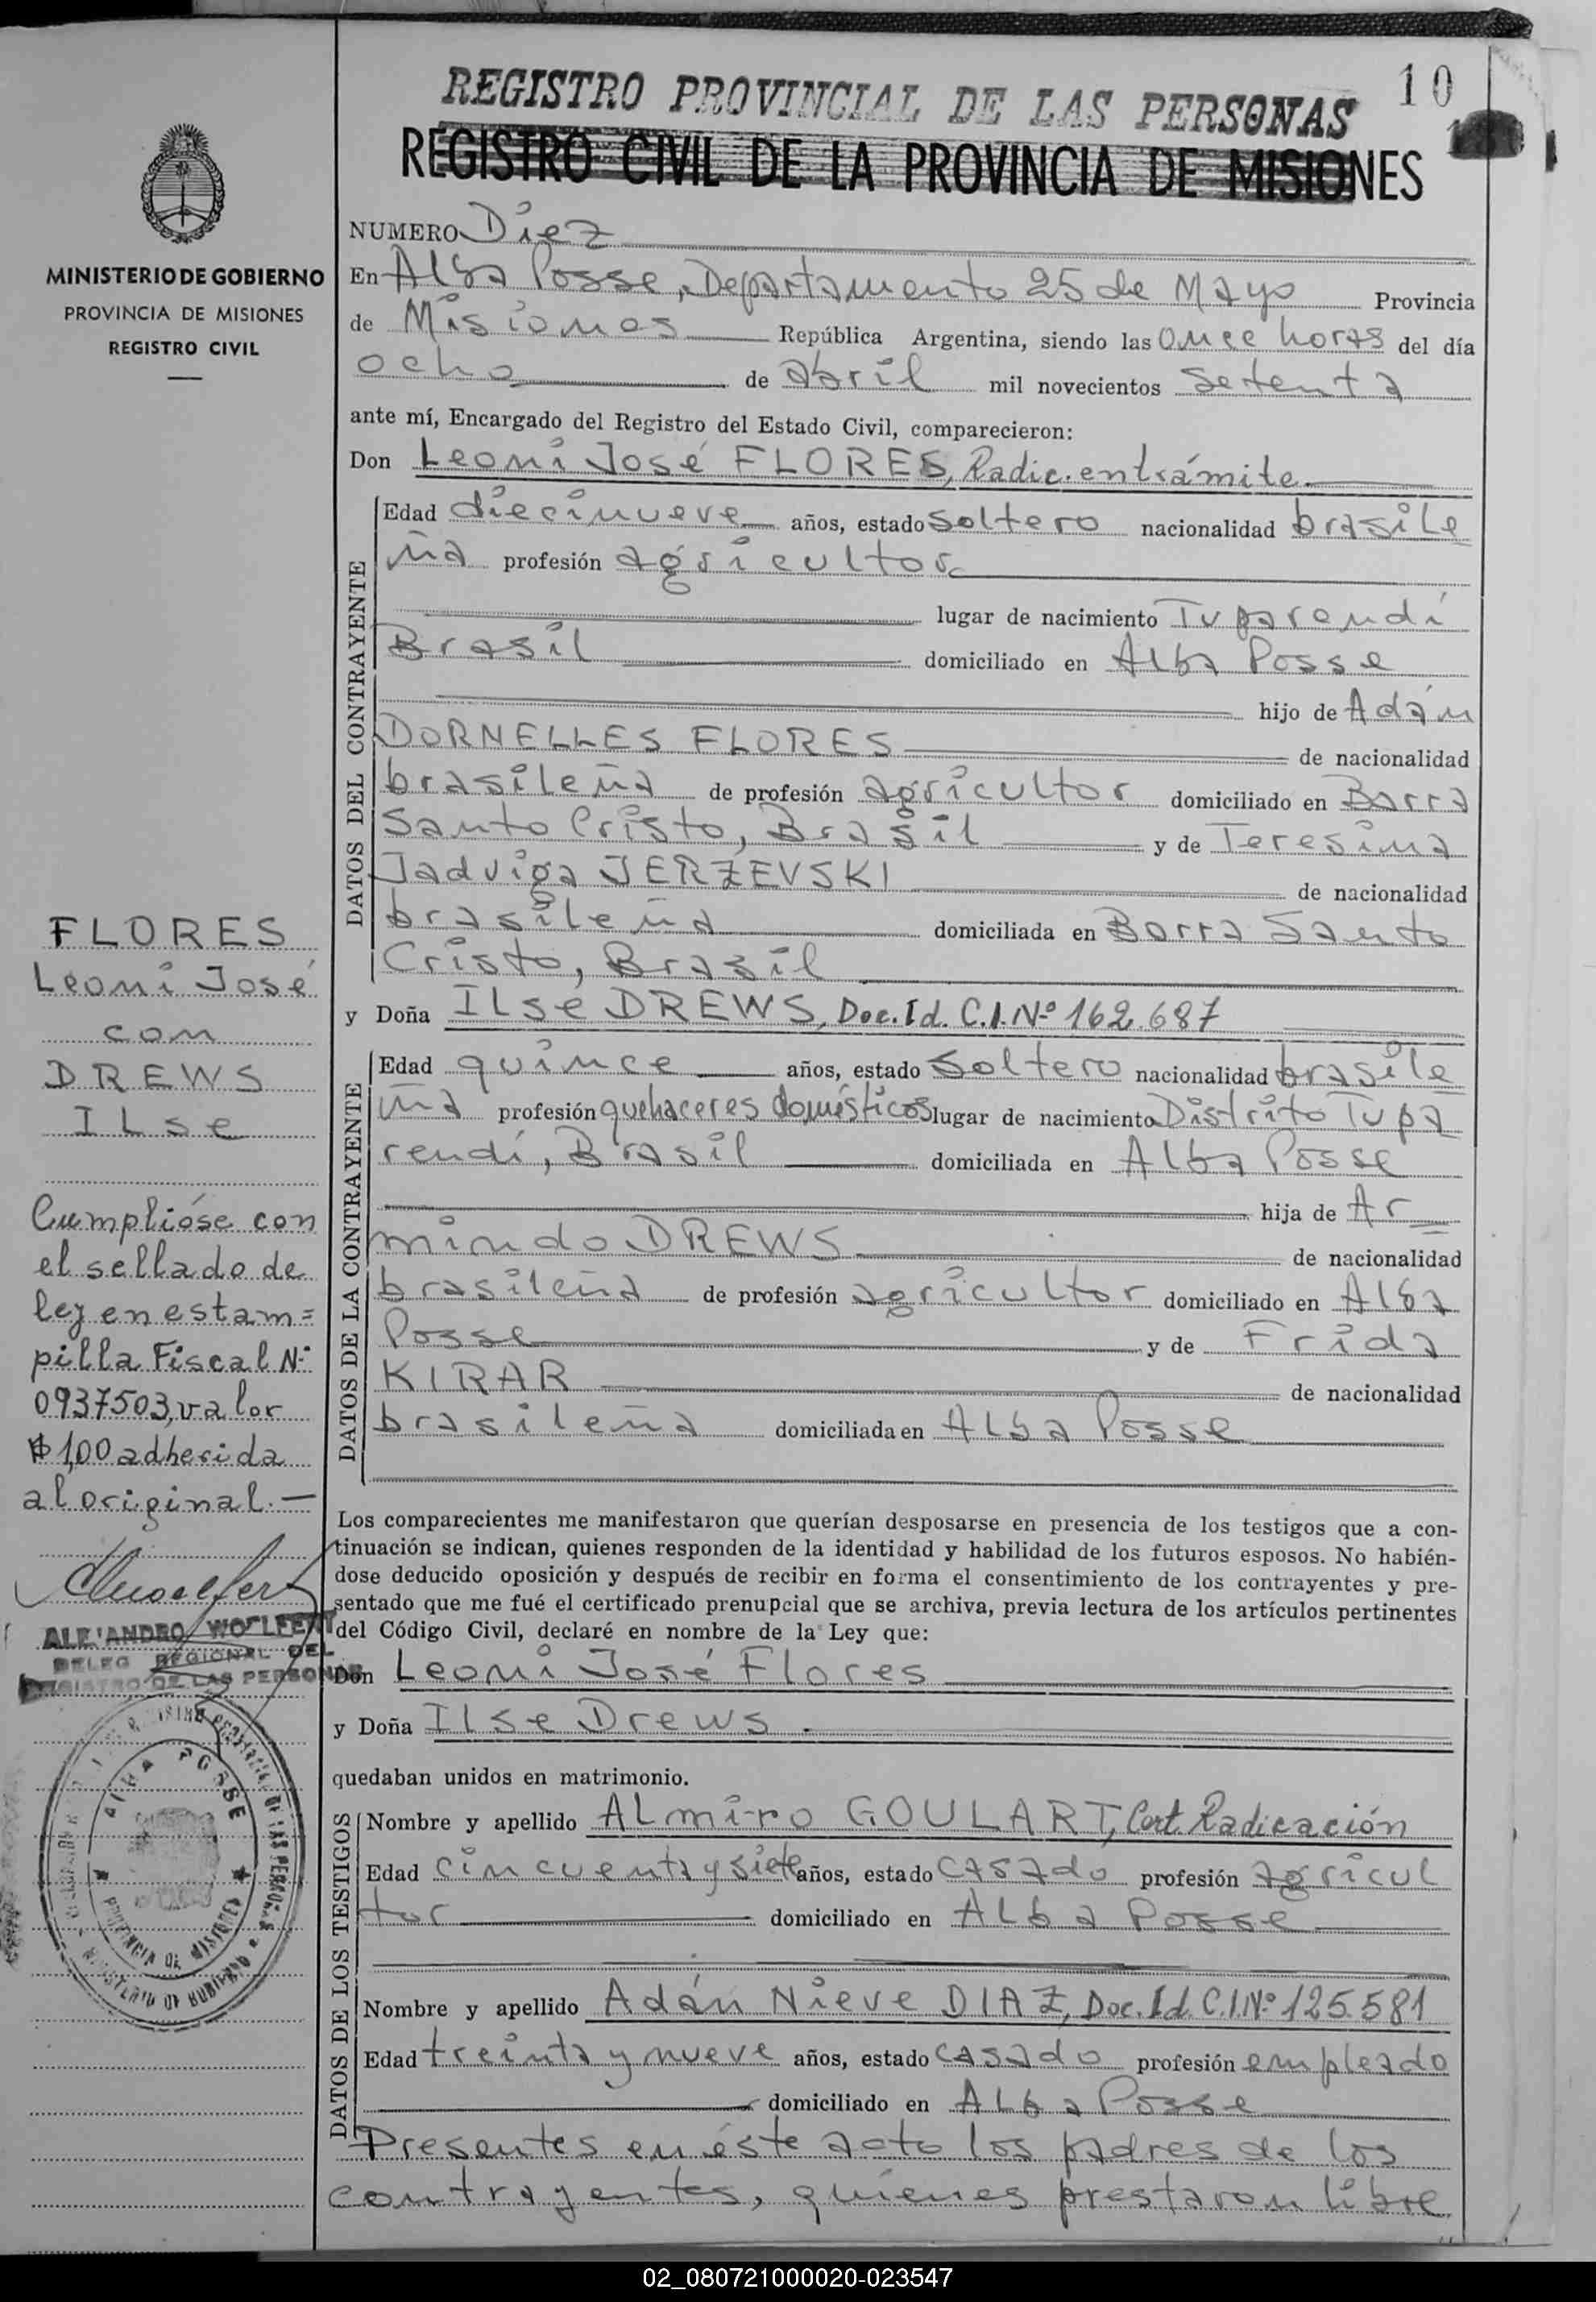 10
REGISTRO PROVINCIAL DE LAS PERSONAS
REGISTRO CIVIL DE LA PROVINCIA DE MISIONES
MINISTERIO DE GOBIERNO
PROVINCIA DE MISIONES
REGISTRO CIVIL
FLORES
Leoni José
con
DREWS
Ilse
Cumplióse con
el sellado de
ley en estam=
pilla Fiscal N.º
0937503, valor
$ 1,00 adherida
al original.—
ALEJANDRO WOLFERT
DELEG REGIONAL DEL
REGISTRO DE LAS PERSONAS
ALBA POSSE
PROVINCIA DE MISIONES
MINISTERIO DE GOBIERNO
NUMERO Diez
En Alba Posse, Departamento 25 de Mayo Provincia
de Misiones República Argentina, siendo las once horas del día
ocho de abril mil novecientos setenta
ante mí, Encargado del Registro del Estado Civil, comparecieron:
Don Leoni José FLORES, Radic. en trámite.
DATOS DEL CONTRAYENTE
Edad diecinueve años, estado soltero nacionalidad brasile
ña profesión agricultor
lugar de nacimiento Tuparendí
Brasil domiciliado en Alba Posse
hijo de Adán
DORNELLES FLORES de nacionalidad
brasileña de profesión agricultor domiciliado en Barra
Santo Cristo, Brasil y de Teresina
Jadviga JERZEVSKI de nacionalidad
brasileña domiciliada en Barra Santo
Cristo, Brasil
y Doña Ilse DREWS, Doc. Id. C.I. Nº 162.687
DATOS DE LA CONTRAYENTE
Edad quince años, estado soltero nacionalidad brasile
ña profesión quehaceres domésticos lugar de nacimiento Distrito Tupa
rendí, Brasil domiciliada en Alba Posse
hija de Ar_
mindo DREWS de nacionalidad
brasileña de profesión agricultor domiciliado en Alba
Posse y de Frida
KIRAR de nacionalidad
brasileña domiciliada en Alba Posse
Los comparecientes me manifestaron que querían desposarse en presencia de los testigos que a con-
tinuación se indican, quienes responden de la identidad y habilidad de los futuros esposos. No habién-
dose deducido oposición y después de recibir en forma el consentimiento de los contrayentes y pre-
sentado que me fué el certificado prenupcial que se archiva, previa lectura de los artículos pertinentes
del Código Civil, declaré en nombre de la Ley que:
Don Leoni José Flores
y Doña Ilse Drews.
quedaban unidos en matrimonio.
DATOS DE LOS TESTIGOS
Nombre y apellido Almiro GOULART, Cert. Radicación
Edad cincuenta y siete años, estado casado profesión agricul
tor domiciliado en Alba Posse
Nombre y apellido Adán Nieve DIAZ, Doc. Id. C.I. Nº 125.581
Edad treinta y nueve años, estado casado profesión empleado
domiciliado en Alba Posse
Presentes en éste acto los padres de los
contrayentes, quienes prestaron libre
02_080721000020-023547